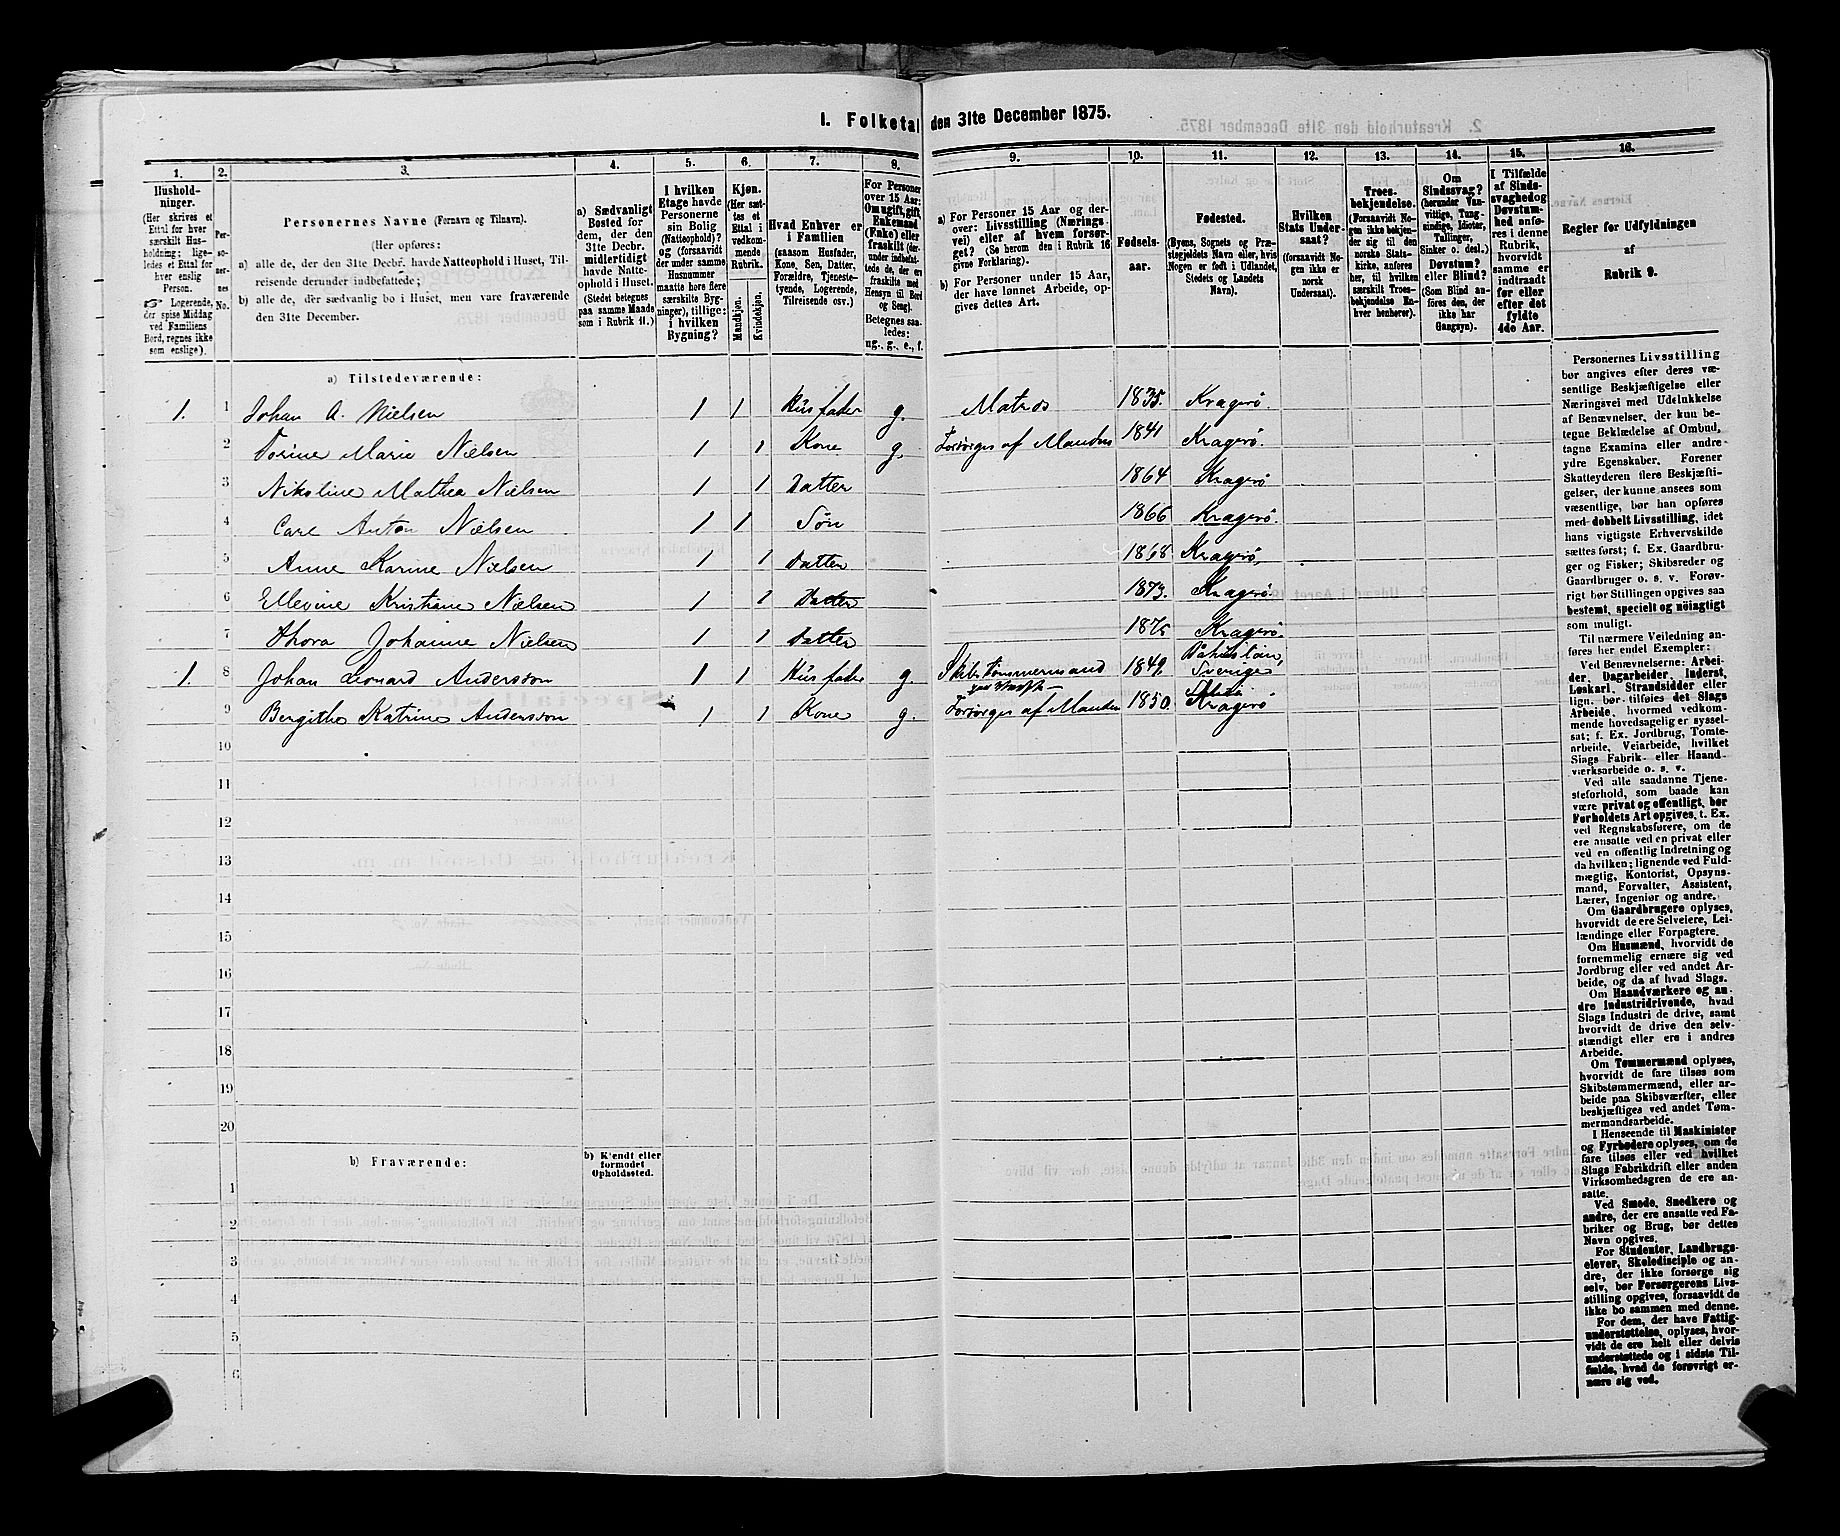 1. Folketal den 31te December 1875.
1. 2. 3. 4. 5. 6. 7. 8. 9. 10. 11. 12. 13. 14. 15. 16.
Hushold-
ninger.
(Her skrives et
Ettal for hver
særskilt Hus-
holdning; lige-
ledes et Ettal for
hver enslig
Person.
☞ Logerende,
der spise Middag
ved Familiens
Bord, regnes ikke
som enslige).
Per-
so-
ner-
nes
No.
Personernes Navne (Fornavn og Tilnavn).
(Her opføres:
a) alle de, der den 31te Decbr. havde Natteophold i Huset, Til-
reisende derunder indbefattede;
b) alle de, der sædvanlig bo i Huset, men vare fraværende
den 31te December.
a) Sædvanligt
Bosted for
dem, der den
31te Decbr.
midlertidigt
havde Natte-
ophold i Huset.
(Stedet betegnes
paa samme Maade
som i Rubrik 11.)
I hvilken
Etage havde
Personerne
sin Bolig
(Natteophold)?
og (forsaavidt
der under samme
Husnummer
maatte høre flere
særskilte Byg-
ninger), tillige:
i hvilken
Bygning?
Kjøn.
(Her sæt-
tes et
Ettal i
vedkom-
mende
Rubrik.
Mandkjøn.
Kvindekjøn.
Hvad Enhver er
i Familien
(saasom Husfader,
Kone, Søn, Datter,
Forældre, Tjeneste-
tyende, Logerende,
Tilreisende osv.)
For Personer
over 15 Aar:
Om ugift, gift,
Enkemand
(Enke) eller
fraskilt (der-
under indbefat-
tede de, der ere
fraskilte med
Hensyn til Bord
og Seng).
Betegnes saa-
ledes:
ug., g., e., f.
a) For Personer 15 Aar og der-
over: Livsstilling (Nærings
vei) eller af hvem forsør-
get? (Se herom den i Rubrik 16
givne Forklaring).
b) For Personer under 15 Aar,
der have lønnet Arbeide, op-
gives dettes Art.
Fødsels-
aar.
Fødested.
(Byens, Sognets og Præ-
stegjeldets Navn eller, hvis
Nogen er født i Udlandet,
Stedets og Landets
Navn).
Hvilken
Stats Under-
saat?
(forsaavidt No-
gen ikke er
norsk
Undersaat).
Troes-
bekjendelse.
(Forsaavidt No-
gen ikke bekjen-
der sig til den
norske Stats-
kirke, anføres
her, til hvilken
særskilt Troes-
bekjendelse En-
hver henhører).
Om
Sindssvag?
(herunder Van-
vittige, Tung-
sindige, Idioter,
Tullinger,
Sinker o. desl.)
Døvstum?
eller Blind?
(Som Blind an-
føres den, der
ikke har
Gangsyn).
I Tilfælde
af Sinds-
svaghed og
Døvstum-
hed anfø-
res i denne
Rubrik,
hvorvidt
samme er
indtraadt
før eller
efter det
fyldte
4de Aar.
Regler for Udfyldningen
af
Rubrik 9.
a) Tilstedeværende:
1. 1 Johan A. Nielsen 1 1 Husfader g. Matros 1835. Kragerø.
2 Torine Marie Nielsen 1 1 Kone g. Forsørges af Manden 1841 Kragerø.
3 Nikoline Mathea Nielsen 1 1 Datter 1864 Kragerø
4 Carl Anton Nielsen 1 1 Søn 1866 Kragerø.
5 Anne Karine Nielsen 1 1 Datter 1868. Kragerø,
6 Ellevine Kristiane Nielsen 1 1 Datter 1873. Kragerø.
7 Thora Johanne Nielsen 1 1 Datter 1875 Kragerø.
1. 8 Johan Leonard Andersson 1 1 Husfader g. Skibstømmermand 1849 Sverige
9 Bergithe Katrine Andersson 1 1 Kone g. Forsørges af Manden 1850. Kragerø
10
11
12
13
14
15
16
17
18
19
20
b) Fraværende:
b) Kjendt eller
formodet
Opholdssted.
1
2
3
4
5
6
Personernes Livsstilling
bør angives efter deres væ-
sentlige Beskjæftigelse eller
Næringsvei med Udelukkelse
af Benævnelser, der kun be-
tegne Beklædelse af Ombud,
tagne Examina eller andre
ydre Egenskaber. Forener
Skatteyderen flere Beskjæfti-
gelser, der kunne ansees som
væsentlige, bør han opføres
med dobbelt Livsstilling, idet
hans vigtigste Erhvervskilde
sættes først; f. Ex. Gaardbru-
ger og Fisker; Skibsreder og
Gaardbruger o. s. v. Forøv-
rigt bør Stillingen opgives saa
bestemt, specielt og nöiagtigt
som muligt.
Til nærmere Veiledning an-
føres her endel Exempler:
Ved Benævnelserne: Arbei-
der, Dagarbeider, Inderst,
Løskarl, Strandsidder eller
lign. bør tilføies det Slags
Arbeide, hvormed vedkom-
mende hovedsagelig er syssel-
sat; f. Ex. Jordbrug, Tomte-
arbeide, Veiarbeide, hvilket
Slags Fabrik- eller Haand-
værksarbeide o. s. v.
Ved alle saadanne Tjene-
steforhold, som baade kan
være privat og offentligt, bør
Forholdets Art opgives, t. Ex.
ved Regnskabsførere, om de
ere ansatte ved en privat eller
ved en offentlig Indretning og
da hvilken; lignende ved Fuld-
mægtig, Kontorist, Opsyns-
mand, Forvalter, Assistent,
Lærer, Ingeniør og andre.
Om Gaardbrugere oplyses,
hvorvidt de ere Selveiere, Lei-
lændinge eller Forpagtere.
Om Husmænd, hvorvidt de
fornemmelig ernære sig ved
Jordbrug eller ved andet Ar-
beide, og da af hvad Slags.
Om Haandværkere og an-
dre Industridrivende, hvad
Slags Industri de drive, samt
hvorvidt de drive den selv-
stændigt eller ere i andres
Arbeide.
Om Tømmermænd oplyses,
hvorvidt de fare tilsøs som
Skibstømmermænd, eller ar-
beide paa Skibsværfter, eller
beskjæftiges ved andet Tøm-
mermandsarbeide.
I Henseende til Maskinister
og Fyrbødere oplyses, om de
fare tilsøs eller ved hvilket
Slags Fabrikdrift eller anden
Virksomhedsgren de ere an-
satte.
Ved Smede, Snedkere og
andre, der ere ansatte ved Fa-
briker og Brug, bør dettes
Navn opgives.
For Studenter, Landbrugs-
elever, Skoledisciple og an-
dre, der ikke forsørge sig
selv, bør Forsørgerens Livs-
stilling opgives, forsaavidt de
ikke bo sammen med denne.
For dem, der have Fattig-
understøttelse, oplyses, hvor-
vidt de ere helt eller delvis
understøttede og i sidste Til-
fælde, hvad de forøvrigt er-
nære sig ved.